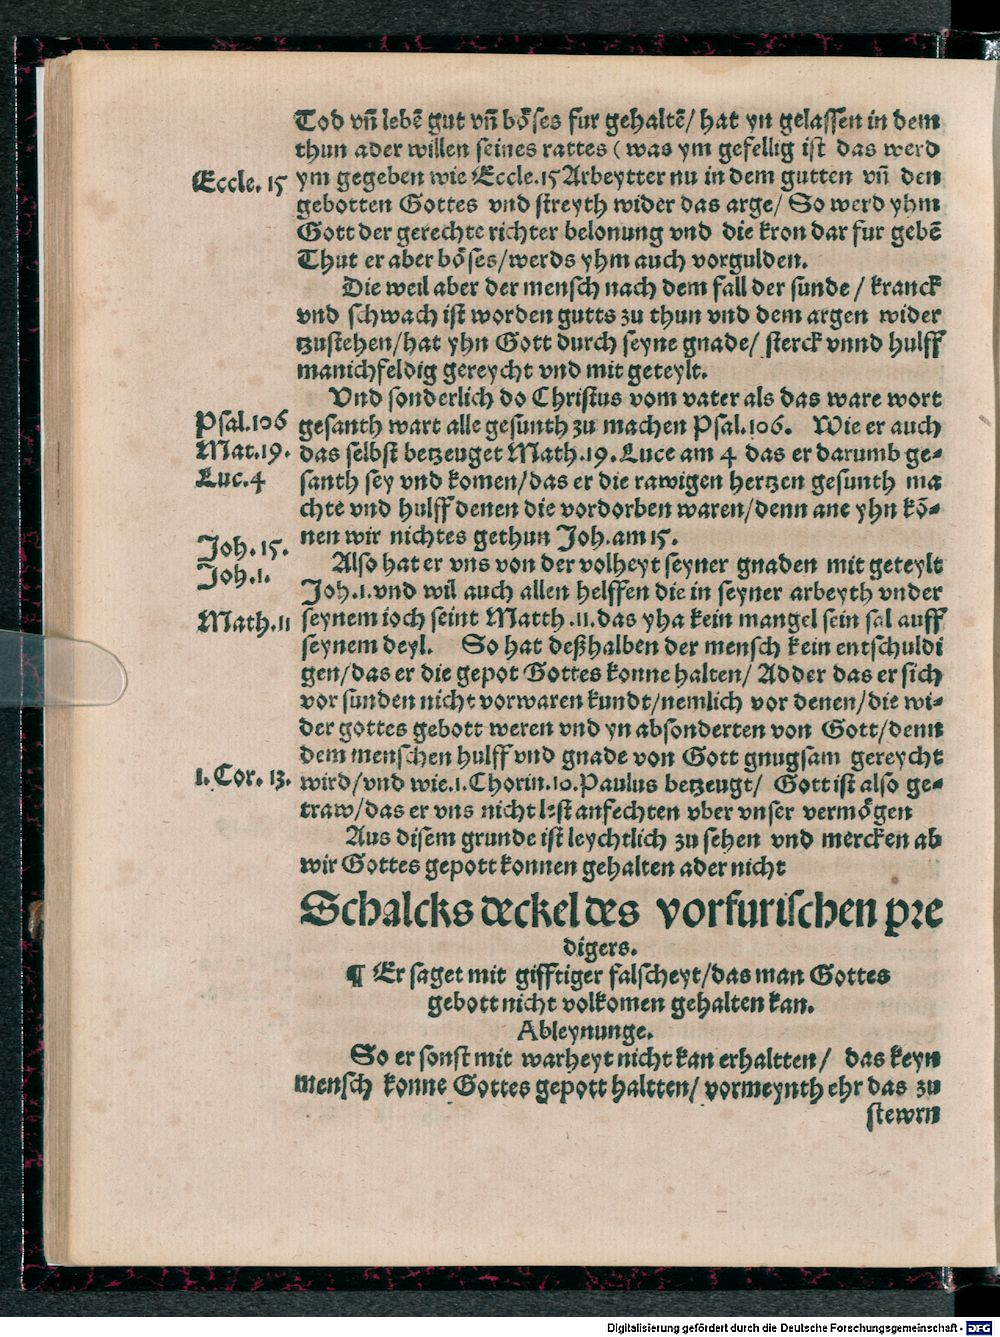 Tod vn̄ lebē gut vn̄ bo̊ses fur gehaltē/ hat yn gelassen in dem
thun ader willen seines rattes ( was ym gefellig ist das werd
Eccle. 15
ym gegeben wie Eccle.15 Arbeytter nu in dem gutten vn̄ den
gebotten Gottes vnd streyth wider das arge/ So werd yhm
Gott der gerechte richter belonung vnd die kron dar fur gebē
Thut er aber bo̊ses/werds yhm auch vorgulden.
Die weil aber der mensch nach dem fall der sunde / kranck
vnd schwach ist worden gutts zu thun vnd dem argen wider
tzustehen/hat yhn Gott durch seyne gnade/ sterck vnnd hulff
manichfeldig gereycht vnd mit geteylt.
Vnd sonderlich do Christus vom vater als das ware wort
Psal.106
gesanth wart alle gesunth zu machen Psal.106. Wie er auch
Mat.19.
das selbst betzeuget Math.19.Luce am 4 das er darumb ge-
Luc.4
santh sey vnd komen/das er die rawigen hertzen gesunth ma
chte vnd hulff denen die vordorben waren/denn ane yhn kō-
nen wir nichtes gethun Joh.am 15.
Joh.15.
Also hat er vns von der volheyt seyner gnaden mit geteylt
Joh.1.
Joh.1.vnd wil auch allen helffen die in seyner arbeyth vnder
Math.11
seynem ioch seint Matth.11.das yha kein mangel sein sal auff
seynem deyl. So hat deßhalben der mensch kein entschuldi
gen/das er die gepot Gottes konne halten/ Adder das er sich
vor sunden nicht vorwaren kundt/nemlich vor denen/die wi-
der gottes gebott weren vnd yn absonderten von Gott/denn
dem menschen hulff vnd gnade von Gott gnugsam gereycht
1.Cor.13.
wird/vnd wie.1.Chorin.10.Paulus betzeugt/ Gott ist also ge-
traw/das er vns nicht lest anfechten vber vnser vermo̊gen
Aus disem grunde ist leychtlich zu sehen vnd mercken ab
wir Gottes gepott konnen gehalten ader nicht
Schalcks deckel des vorfurischen pre
digers.
¶ Er saget mit gifftiger falscheyt/das man Gottes
gebott nicht volkomen gehalten kan.
Ableynunge.
So er sonst mit warheyt nicht kan erhaltten/ das keyn
mensch konne Gottes gepott haltten/ vormeynth ehr das zu
stewrn
Digitalisierung gefördert durch die Deutsche Forschungsgemeinschaft - DFG